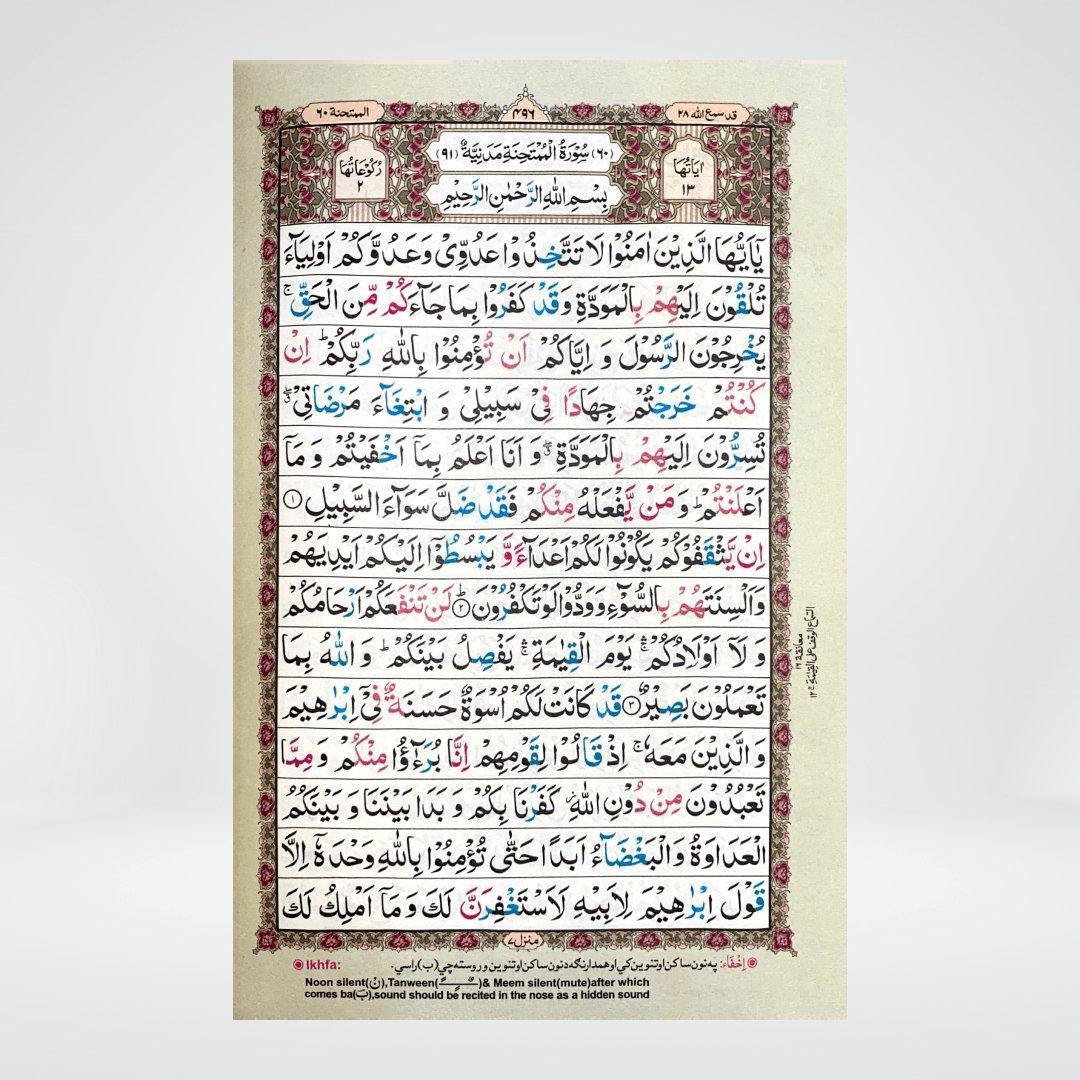 قد سمع الله ٢٨
٤٩٦
الممتحنة ٦٠
اٰيَاتُهَا ١٣
(٦٠) سُوْرَةُ الْمُمْتَحِنَةِ مَدَنِيَّةٌ (٩١)
رُكُوْعَاتُهَا ٢
بِسْمِ اللهِ الرَّحْمٰنِ الرَّحِيْمِ
يٰۤاَيُّهَا الَّذِيْنَ اٰمَنُوْا لَا تَتَّخِذُوْا عَدُوِّىْ وَعَدُوَّكُمْ اَوْلِيَآءَ
تُلْقُوْنَ اِلَيْهِمْ بِالْمَوَدَّةِ وَقَدْ كَفَرُوْا بِمَا جَآءَكُمْ مِّنَ الْحَقِّ ۚ
يُخْرِجُوْنَ الرَّسُوْلَ وَ اِيَّاكُمْ اَنْ تُؤْمِنُوْا بِاللهِ رَبِّكُمْ ؕ اِنْ
كُنْتُمْ خَرَجْتُمْ جِهَادًا فِىْ سَبِيْلِىْ وَ ابْتِغَآءَ مَرْضَاتِىْ ۖ
تُسِرُّوْنَ اِلَيْهِمْ بِالْمَوَدَّةِ ۖ وَ اَنَا اَعْلَمُ بِمَاۤ اَخْفَيْتُمْ وَ مَاۤ
اَعْلَنْتُمْ ؕ وَ مَنْ يَّفْعَلْهُ مِنْكُمْ فَقَدْ ضَلَّ سَوَآءَ السَّبِيْلِ ١
اِنْ يَّثْقَفُوْكُمْ يَكُوْنُوْا لَكُمْ اَعْدَآءً وَّ يَبْسُطُوْۤا اِلَيْكُمْ اَيْدِيَهُمْ
وَاَلْسِنَتَهُمْ بِالسُّوْٓءِ وَوَدُّوْا لَوْ تَكْفُرُوْنَ ؕ ٢ لَنْ تَنْفَعَكُمْ اَرْحَامُكُمْ
وَ لَاۤ اَوْلَادُكُمْ ۛۚ يَوْمَ الْقِيٰمَةِ ۛۚ يَفْصِلُ بَيْنَكُمْ ؕ وَ اللهُ بِمَا
تَعْمَلُوْنَ بَصِيْرٌ ٣ قَدْ كَانَتْ لَكُمْ اُسْوَةٌ حَسَنَةٌ فِىْۤ اِبْرٰهِيْمَ
وَ الَّذِيْنَ مَعَهٗ ۚ اِذْ قَالُوْا لِقَوْمِهِمْ اِنَّا بُرَءٰٓؤُا مِنْكُمْ وَ مِمَّا
تَعْبُدُوْنَ مِنْ دُوْنِ اللهِ ؗ كَفَرْنَا بِكُمْ وَ بَدَا بَيْنَنَا وَ بَيْنَكُمُ
الْعَدَاوَةُ وَ الْبَغْضَآءُ اَبَدًا حَتّٰى تُؤْمِنُوْا بِاللهِ وَحْدَهٗۤ اِلَّا
قَوْلَ اِبْرٰهِيْمَ لِاَبِيْهِ لَاَسْتَغْفِرَنَّ لَكَ وَ مَاۤ اَمْلِكُ لَكَ
منزل ٧
اِخْفَاء: په نون ساکن او تنوین کي او همدارنګه د نون ساکن او تنوین وروسته چي (ب) راسي.
Ikhfa:
Noon silent(نْ),Tanween(ـًـٍـٌ)& Meem silent(mute)after which
comes ba(بَ),sound should be recited in the nose as a hidden sound